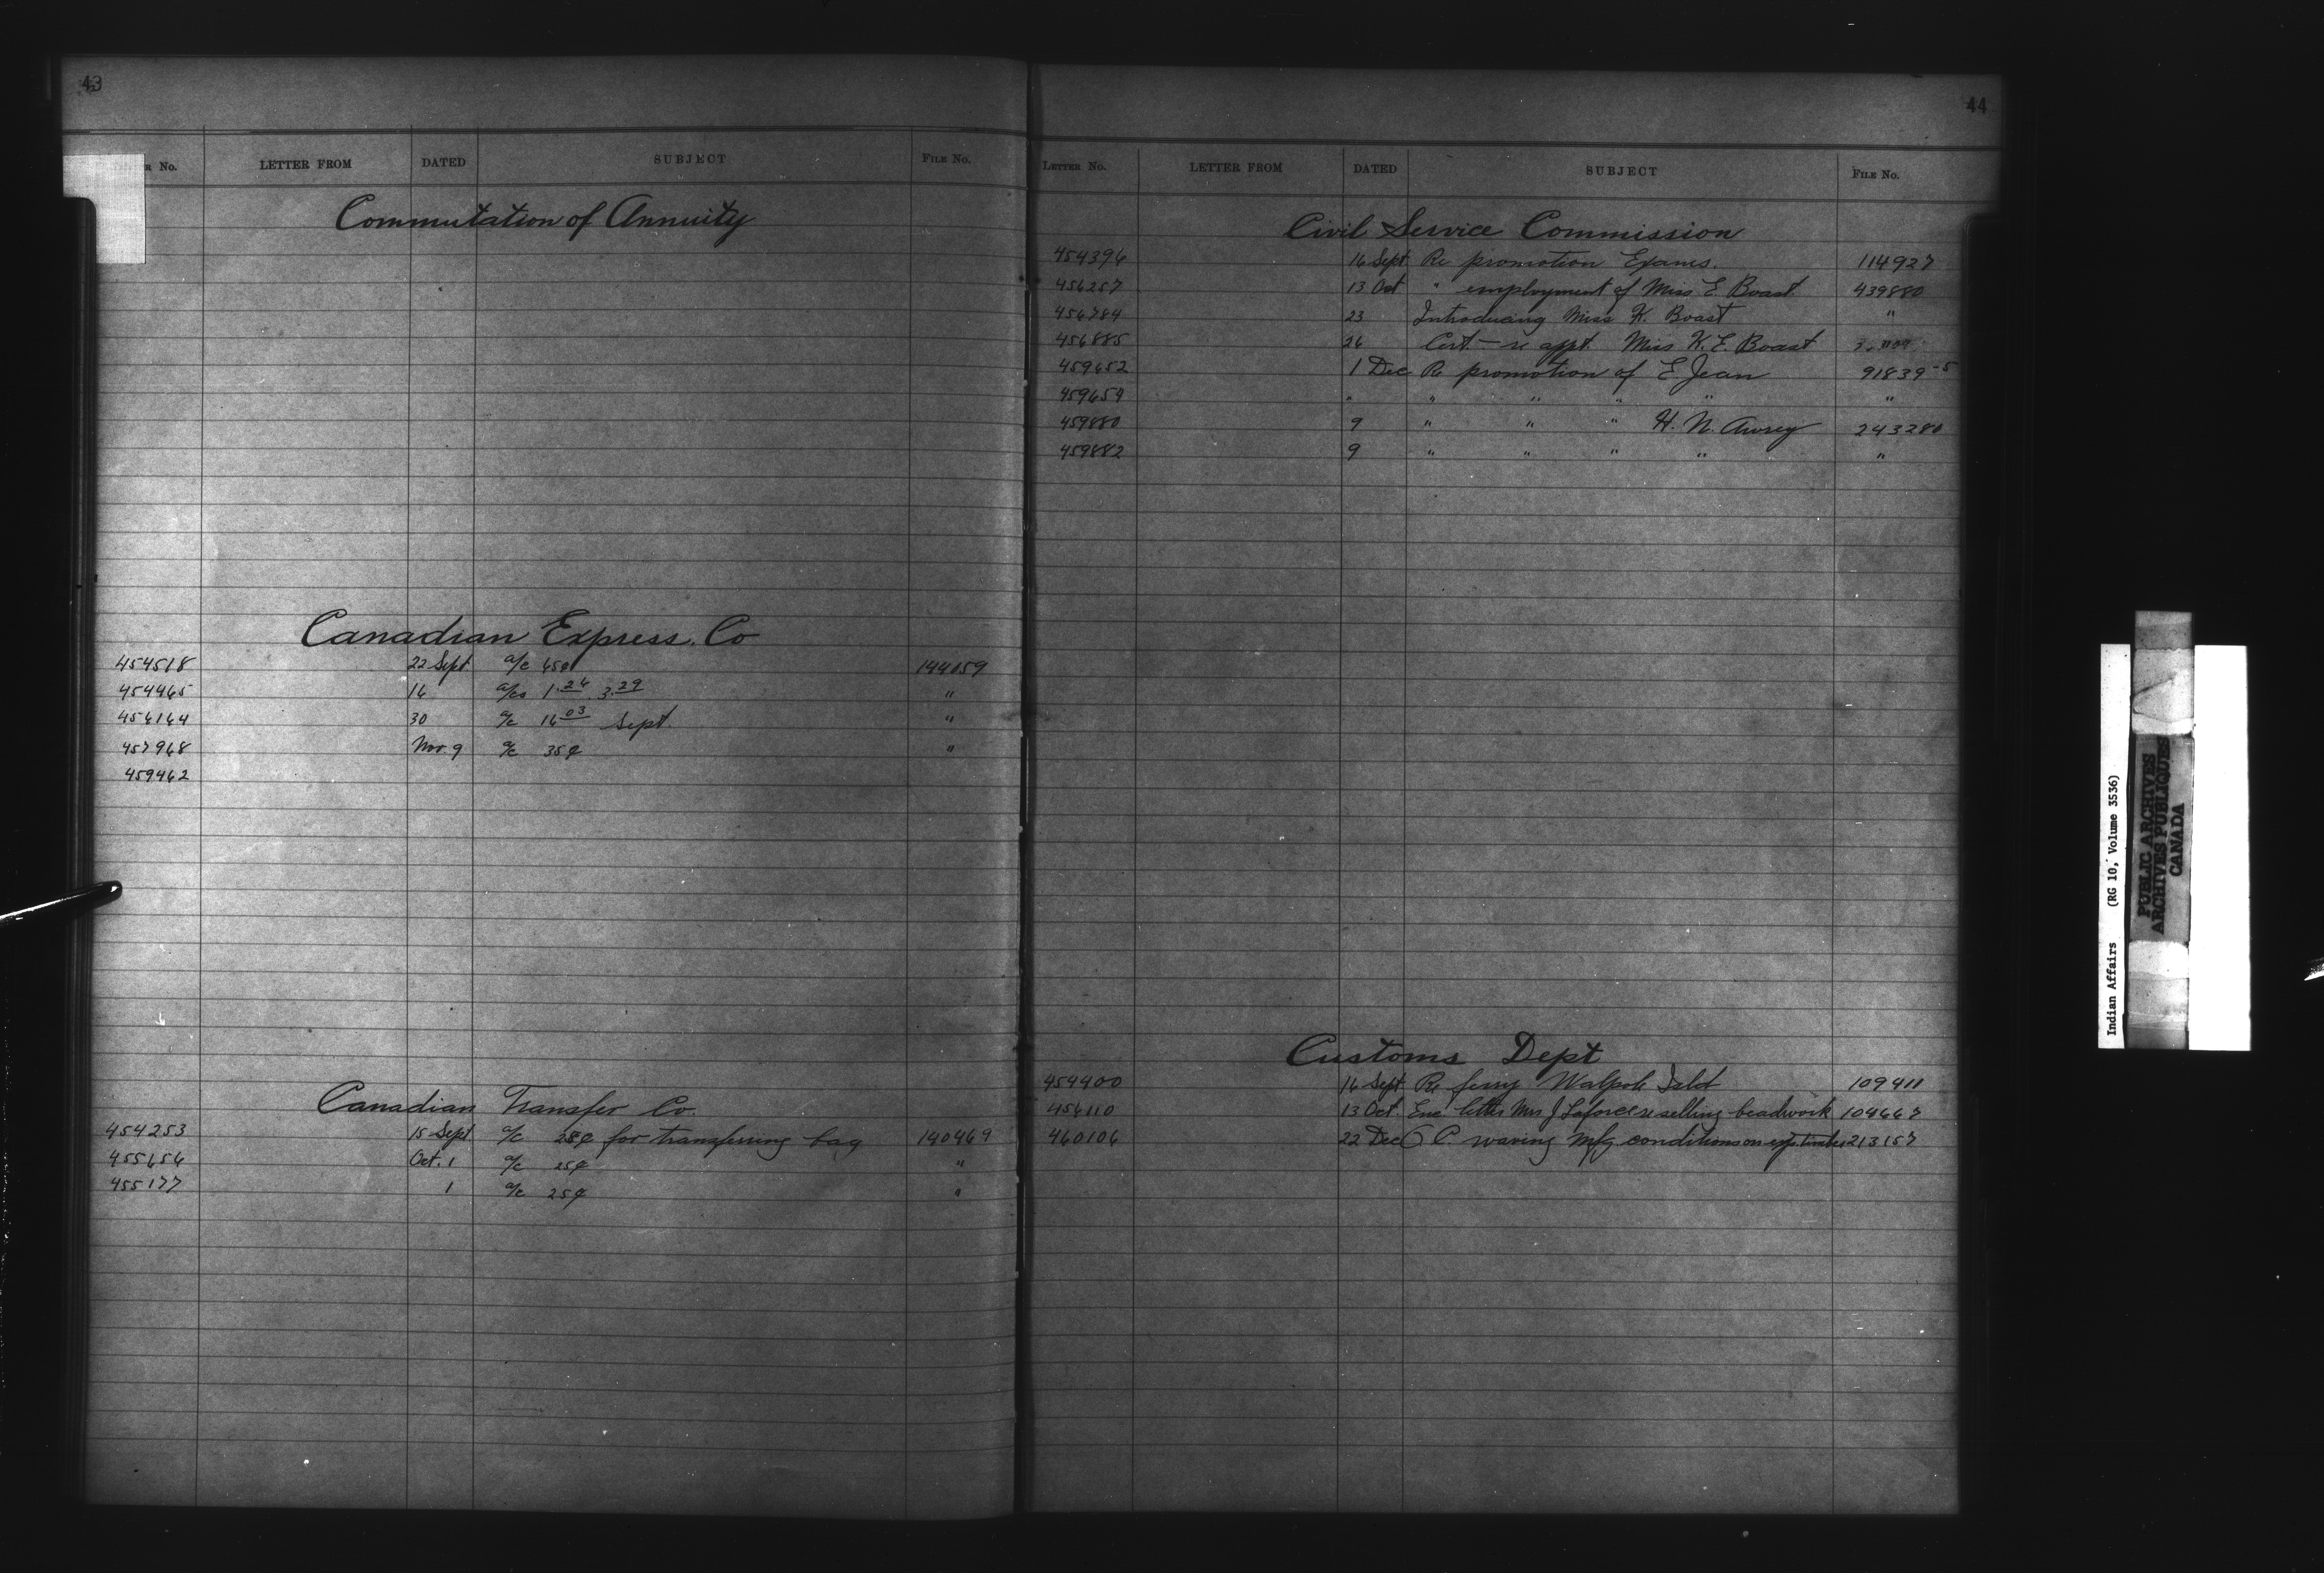 43
R No. LETTER FROM DATED SUBJECT FILE No.
Commutation of Annuity
Canadian Express. Co
454518 22 Sept. a/c 65¢ 144059
454465 16 a/cs 1.26 3.29 "
456164 30 a/c 16 03 Sept. "
457968 Nov. 9 a/c 35¢ "
459462
Canadian Transfer Co.
454253 15 Sept a/c 25¢ for transferring bag 140469
455656 Oct. 1 a/c 25¢ "
455177 1 a/c 25¢ "
44
LETTER No. LETTER FROM DATED SUBJECT FILE No.
Civil Service Commission
454396 16 Sept. Re promotion Exams. 114927
456257 13 Oct " employment of Miss E. Boast 439880
456784 23 Introducing Miss K. Boast "
456885 26 Cert. — re appt. Miss K. E. Boast
459652 1 Dec Re promotion of E Jean 91839-5
459654 " " " " " "
459880 9 " " " H. N. Awrey 243280
459882 9 " " " " "
Customs Dept
454400 16 Sept Re ferry Walpole Isld 109411
456110 13 Oct. Enc letter Mrs J Laforce re selling beadwork 104667
460106 22 Dec O. C waving Mfg conditions on exp. timber 213157
Indian Affairs (RG 10, Volume 3536)
PUBLIC ARCHIVES
ARCHIVES PUBLIQUES
CANADA